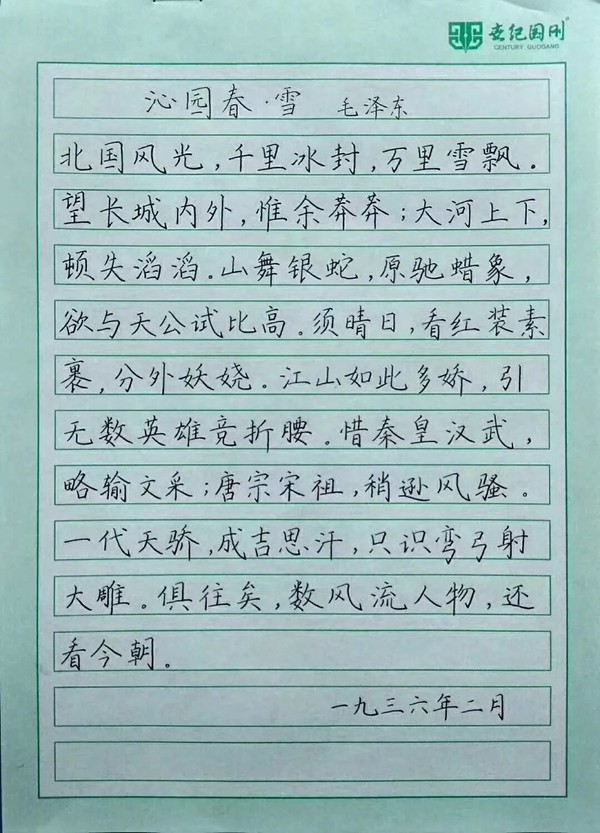 世纪国刚
CENTURY GUOGANG
沁园春·雪 毛泽东
北国风光,千里冰封,万里雪飘。
望长城内外,惟余莽莽;大河上下,
顿失滔滔.山舞银蛇,原驰蜡象,
欲与天公试比高.须晴日,看红装素
裹,分外妖娆.江山如此多娇,引
无数英雄竞折腰.惜秦皇汉武,
略输文采;唐宗宋祖,稍逊风骚。
一代天骄,成吉思汗,只识弯弓射
大雕。俱往矣,数风流人物,还
看今朝。
一九三六年二月